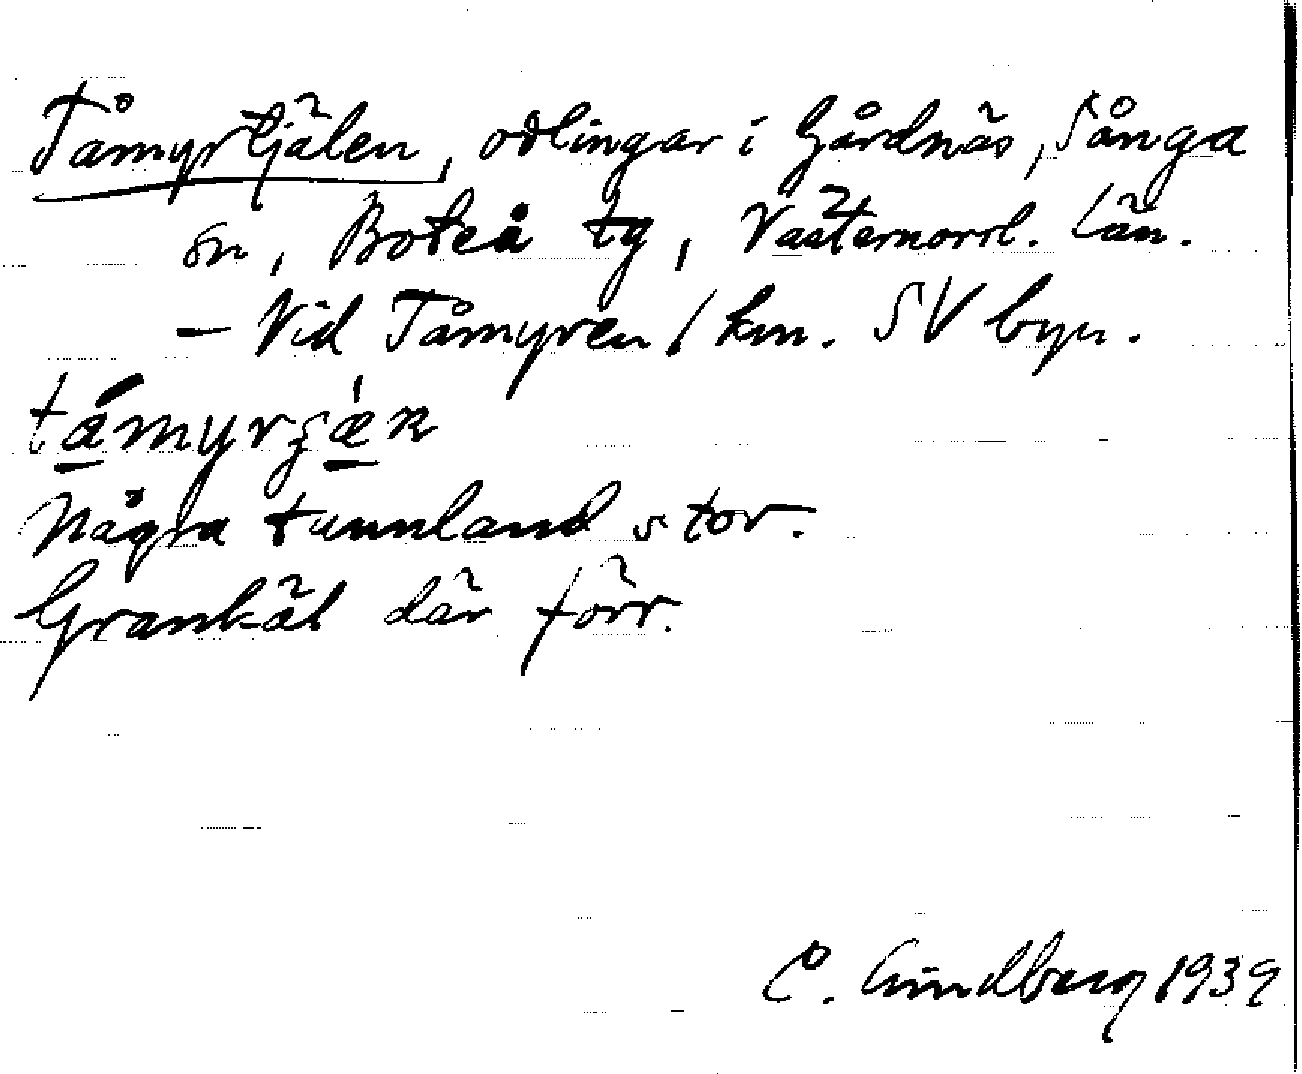 Tåmyrtjälen, odlingar i Gårdnäs, Sånga
sn, Boteå tg, Västernorrl. län.
- Vid Tåmyren 1 km. SV byn.
Några tunnland stor.
Grankäl där förr.
Lindberg 1939